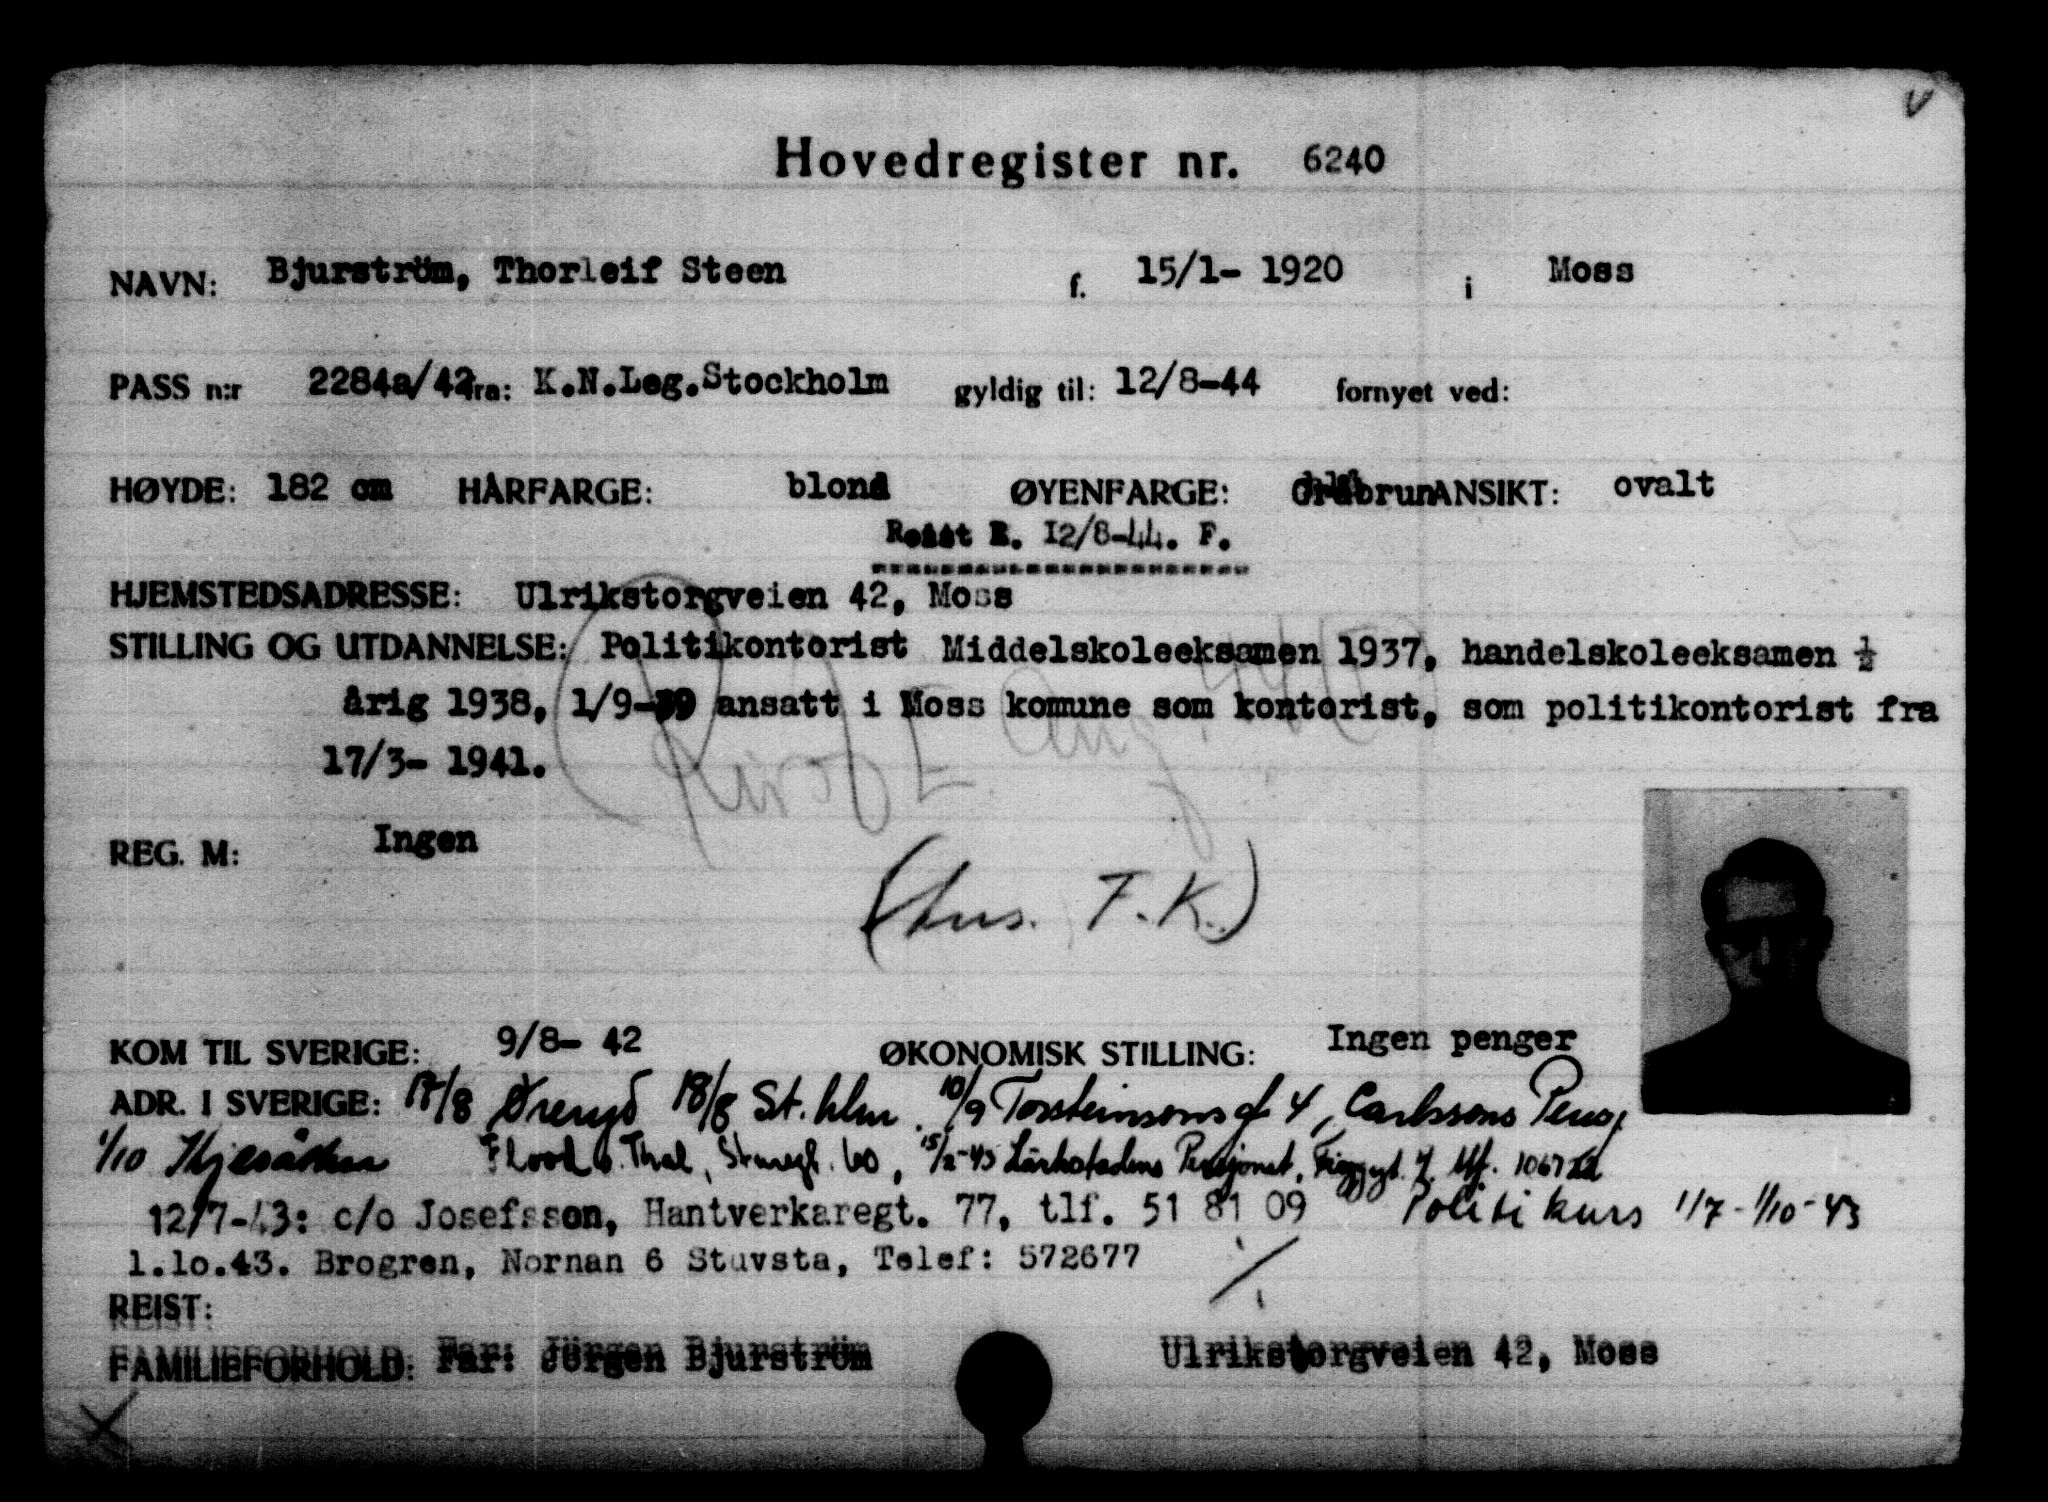 Hovedregister nr. 6240
NAVN: Bjurström, Thorleif Steen f. 15/1- 1920 i Moss
PASS n:r 2284a/42 fra: K.N.Leg.Stockholm gyldig til: 12/8-44 fornyet ved:
HØYDE: 182 cm HÅRFARGE: blond ØYENFARGE: ANSIKT: ovalt
Reist E. 12/8-44. F.
HJEMSTEDSADRESSE: Ulrikstorgveien 42, Moss
STILLING OG UTDANNELSE: Politikontorist Middelskoleeksamen 1937, handelskoleeksamen ½
årig 1938, 1/9-39 ansatt i Moss komune som kontorist, som politikontorist fra
17/3- 1941.
E Aug. 44 (F)
REG. M: Ingen
(hus. F.K.)
KOM TIL SVERIGE: 9/8- 42 ØKONOMISK STILLING: Ingen penger
ADR. I SVERIGE: 17/8 Øreryd 18/8 St.hlm. 10/9 Torsteinsonsg. 4, Carlssons Pensj.
1/10 Kjesäter Flood v. Thal, Stureg. 60, 15/2-43 Lärkstadens Pensjonat, 7. tlf. 106722
12/7-43: c/o Josefsson, Hantverkaregt. 77, tlf. 51 81 09 Politikurs 1/7-1/10-43
1.10.43. Brogren, Nornan 6 Stuvsta, Telef: 572677
REIST:
FAMILIEFORHOLD: Far: Jörgen Bjurström Ulrikstorgveien 42, Moss